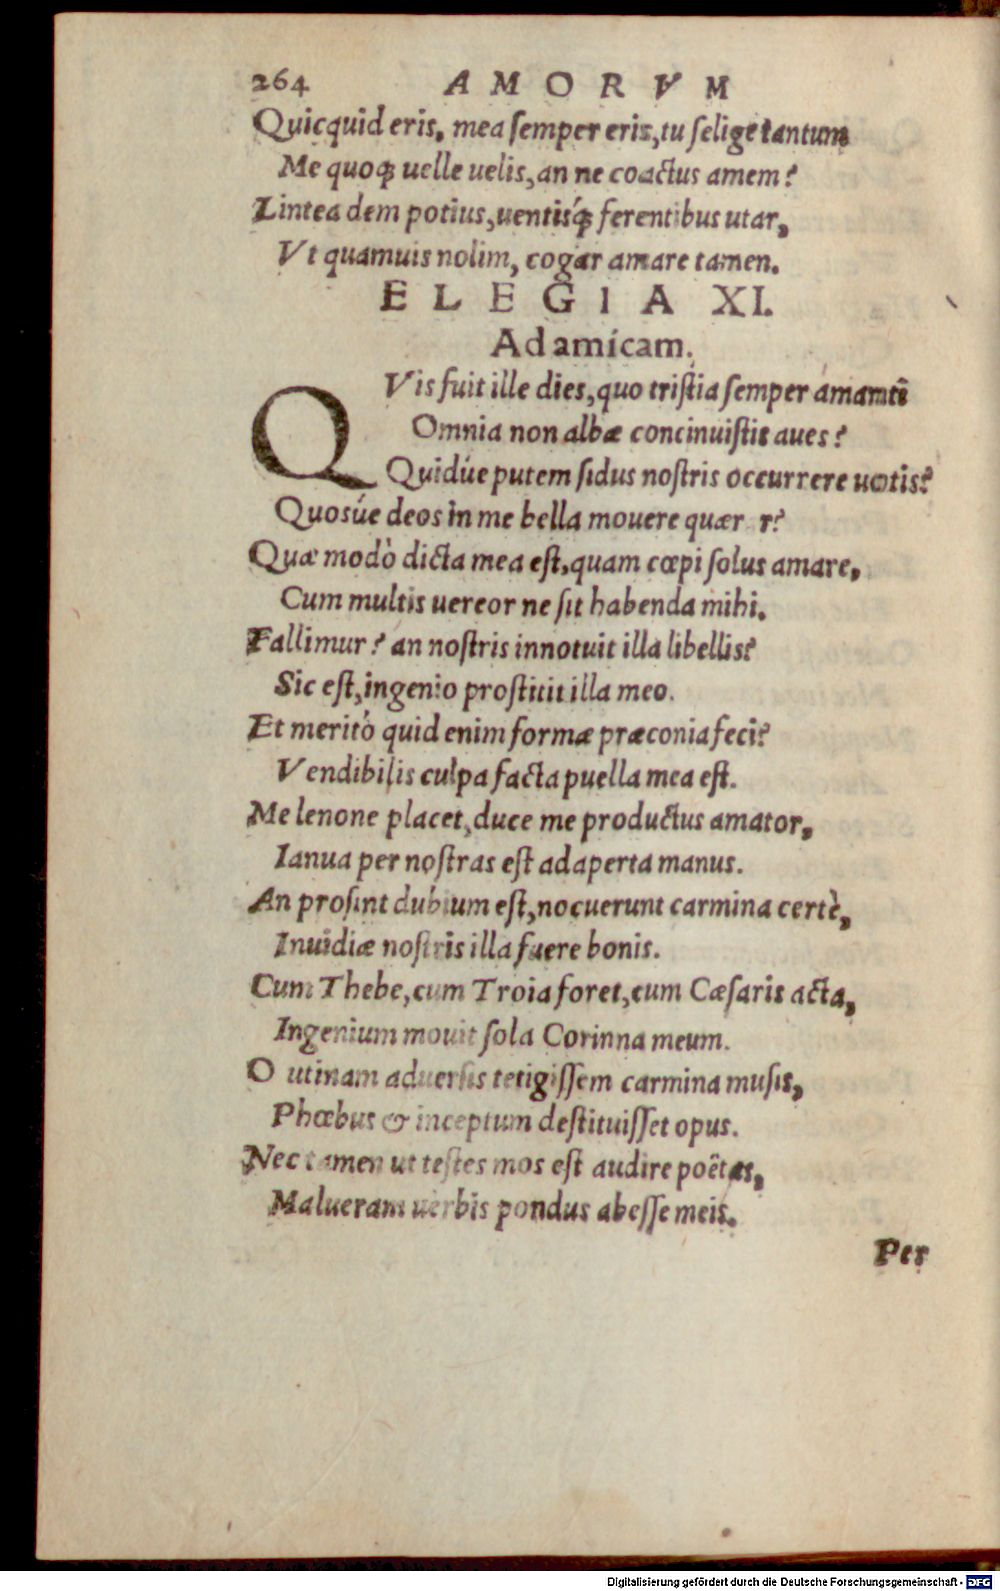 264 AMORVM
Quicquid eris, mea ſemper eris, tu ſelige tantum
Me quoqꝫ uelle uelis, an ne coactus amem?
Lintea dem potius, uentisq́ꝫ ferentibus utar,
Vt quamuis nolim, cogar amare tamen.
ELEGIA XI.
Ad amicam.
QVis fuit ille dies, quo triſtia ſemper amanti
Omnia non albæ concinuiſtis aues?
Quidúe putem ſidus noſtris occurrere uotis?
Quosúe deos in me bella mouere quær r?
Quæ modò dicta mea eſt, quam cœpi ſolus amare,
Cum multis uereor ne ſit habenda mihi.
Fallimur? an noſtris innotuit illa libellis?
Sic eſt, ingenio proſtitit illa meo.
Et meritò quid enim formæ præconia feci?
Vendibilis culpa facta puella mea eſt.
Me lenone placet, duce me productus amator,
Ianua per noſtras eſt adaperta manus.
An proſint dubium eſt, nocuerunt carmina certè,
Inuidiæ noſtris illa fuere bonis.
Cum Thebe, cum Troia foret, cum Cæſaris acta,
Ingenium mouit ſola Corinna meum.
O utinam aduerſis tetigiſſem carmina muſis,
Phœbus & inceptum deſtituiſſet opus.
Nec tamen ut teſtes mos eſt audire poëtas,
Malueram uerbis pondus abeſſe meis.
Per
Digitalisierung gefördert durch die Deutsche Forschungsgemeinschaft - DFG